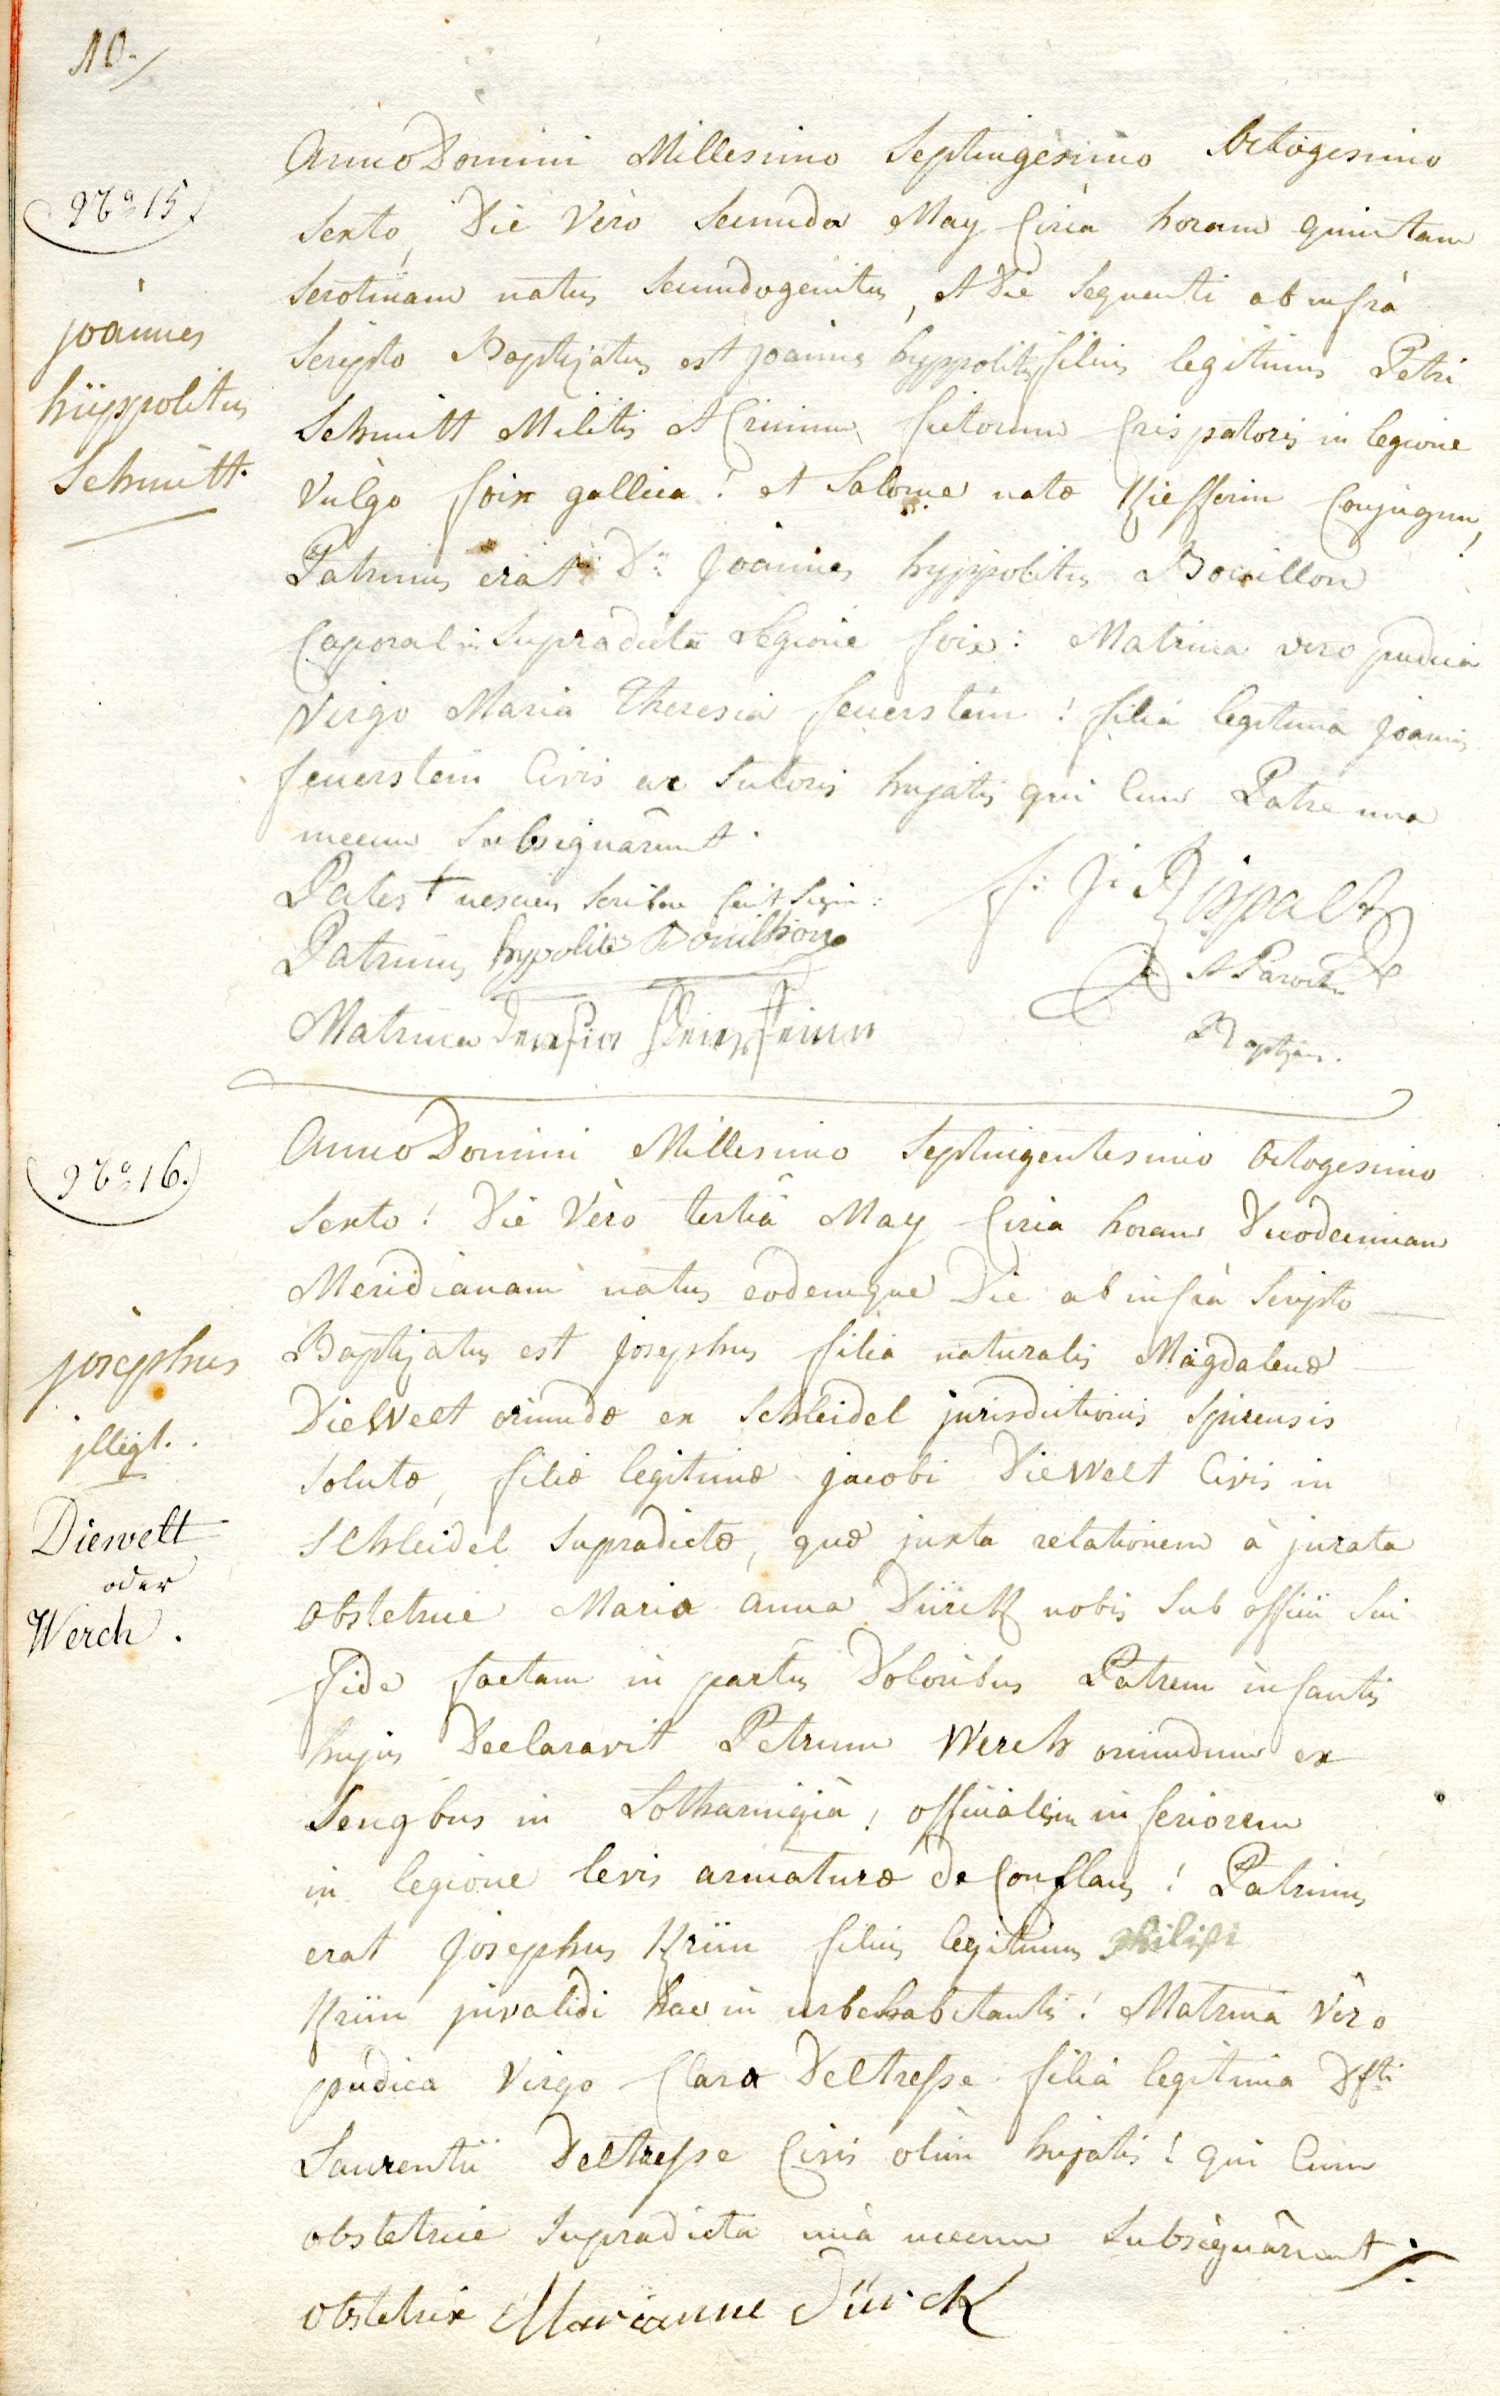 10.
Anno Domini Millesimo Septingesimo Octogesimo
No 15
Sexto, Die Vero Secunda May Circa horam quintam
Serotinam natus Secundogenitus, et Die Sequenti ab infrà
joànnes
Scripto Baptizatus est joannes hyppolitus filius legitimus Petri
hüppolitus
Schmitt Militis et Crinium fictorum Crispatoris in legione
Schmitt.
Vulgo foix gallica! et Salome natæ Kiefferin Conjugum,
Patrinus erat Ds: Joannes hyppolitus Bouillon
Caporal in Supradicta Legione foix: Matrina vero pudica
Virgo Maria Theresia feuerstein! filia legitima Joannis
feuerstein Civis ac Sutoris hujatis qui Cum Patre una
mecum Subsignârunt.
Pater + nesciens Scribere fecit Sign:
Patrinus hypolite Bouilhon
Matrina
Parochus
Baptizans.
No 16.
Anno Domini Millesimo Septingentesimo Octogesimo
Sexto! Die Vèro tertiâ May Circa horam Duodecimam
Meridianam natus eodemque Die ab infrà Scripto
josèphus
Baptizatus est josephus filia naturalis Magdalenæ
jllegt.
DieWelt oriundæ ex Schleidel jurisdictionis Spirensis
Solutæ, filiæ legitimæ jacobi DieWelt Civis in
Diewelt
Schleidel Supradictæ, quæ juxta relationem à jurata
oder
Werch.
obstetrice Maria anna Dürck nobis Sub officii Sui
fide factam in partus Doloribus Patrem infantis
hujus Declaravit Petrum Werch oriundum ex
Sengbus in Lotharingià, officialem inferiorem
in legione levis armaturæ de Conflans! Patrinus
erat josephus Krün filius legitimus philipi
Krün jnvalidi hac in urbe habitantis! Matrina Vèro
pudica Virgo Clara Deltresse filia legitima Dfti
Laurentii Deltresse Civis olim hujatis! qui Cum
obstetrice Supradicta unà mecum Subsignârunt.
obstetrix Marianne Dürck